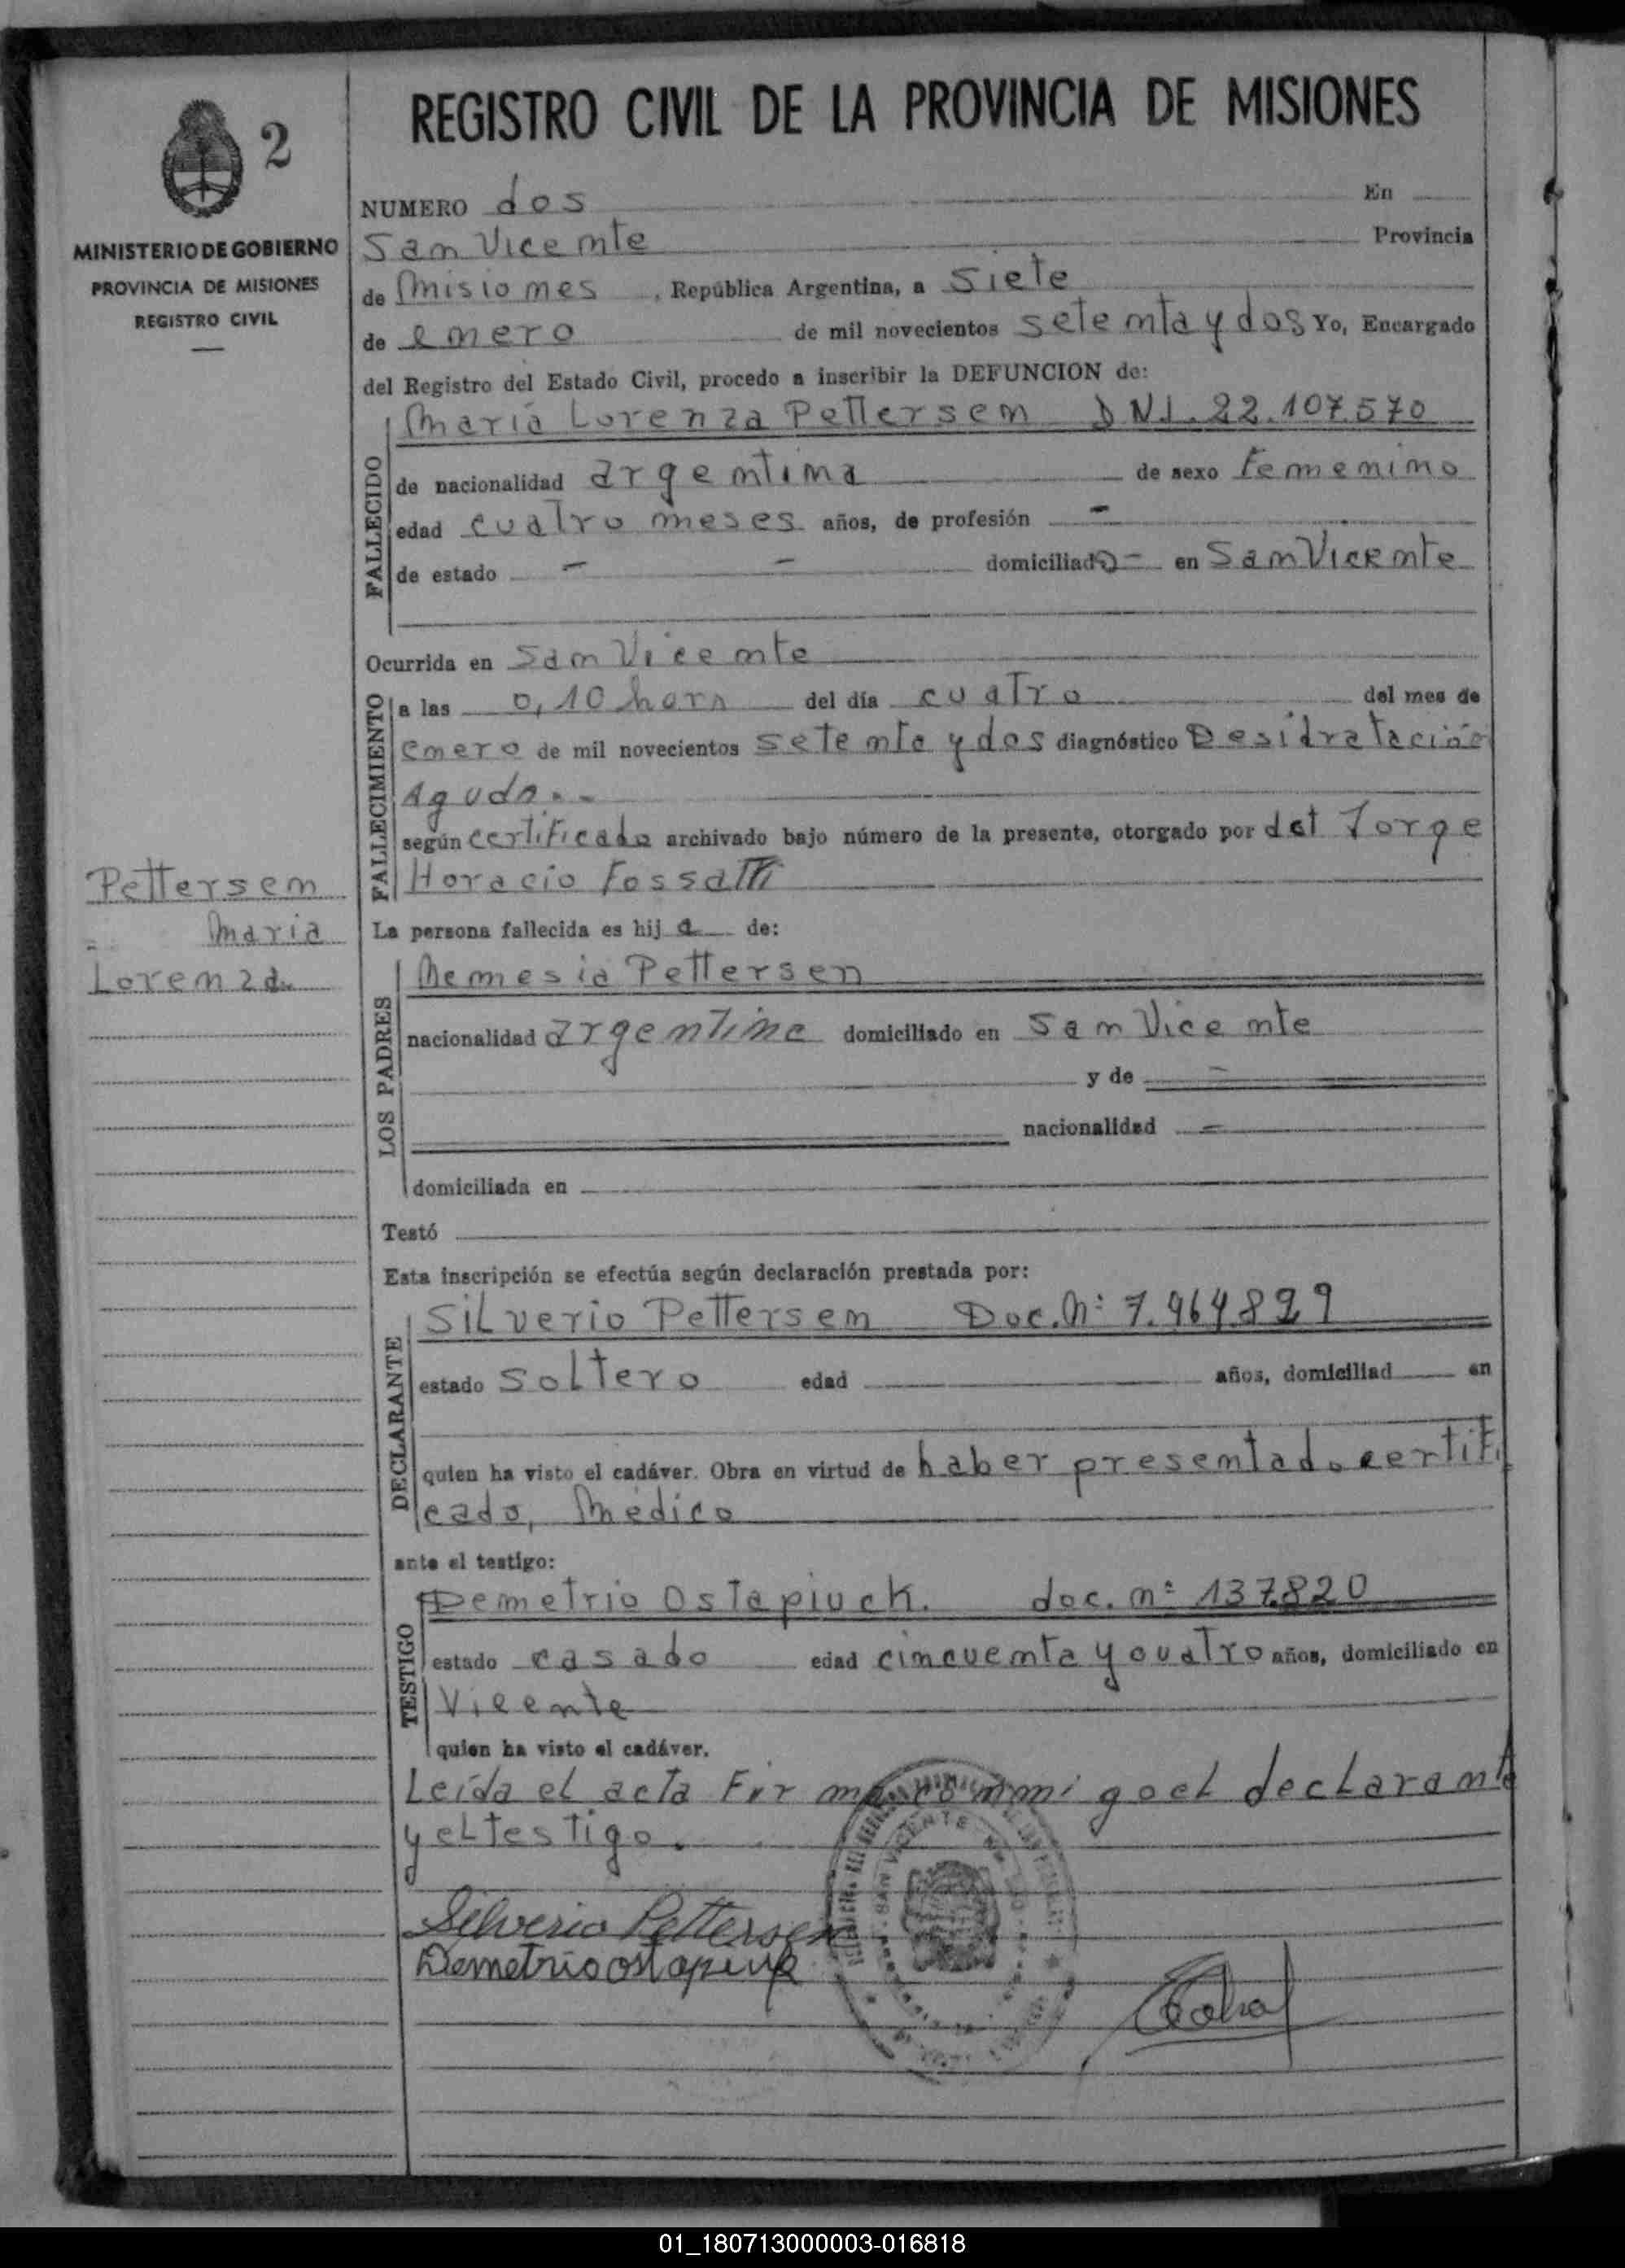 REGISTRO CIVIL DE LA PROVINCIA DE MISIONES
2
MINISTERIO DE GOBIERNO
PROVINCIA DE MISIONES
REGISTRO CIVIL
NUMERO dos En
San Vicente Provincia
de Misiones, República Argentina, a siete
de enero de mil novecientos setenta y dos Yo, Encargado
del Registro del Estado Civil, procedo a inscribir la DEFUNCION de:
FALLECIDO
Maria Lorenza Pettersen DNI. 22.107.570
de nacionalidad argentina de sexo femenino
edad cuatro meses años, de profesión -
de estado - - domiciliado - en San Vicente
Ocurrida en San Vicente
FALLECIMIENTO
a las 0,10 hora del día cuatro del mes de
enero de mil novecientos setenta y dos diagnóstico Desidratación
Aguda.-
según certificado archivado bajo número de la presente, otorgado por del Jorge
Horacio Fossatti
Pettersen
Maria
Lorenza
La persona fallecida es hij a de:
LOS PADRES
Nemesia Pettersen
nacionalidad argentina domiciliado en San Vicente
y de -
nacionalidad -
domiciliada en
Testó
Esta inscripción se efectúa según declaración prestada por:
DECLARANTE
Silverio Pettersen Doc. Nº 7.464.829
estado soltero edad años, domiciliad en
quien ha visto el cadáver. Obra en virtud de haber presentado certifi
cado, Médico
ante el testigo:
TESTIGO
Demetrio Ostapiuck. doc. nº 137.820
estado casado edad cincuenta y cuatro años, domiciliado en
Vicente
quien ha visto el cadáver.
Leída el acta Firma conmigo el declarante
y el testigo.
SAN VICENTE
Silverio Pettersen
Demetrio Ostapiuk
01_180713000003-016818